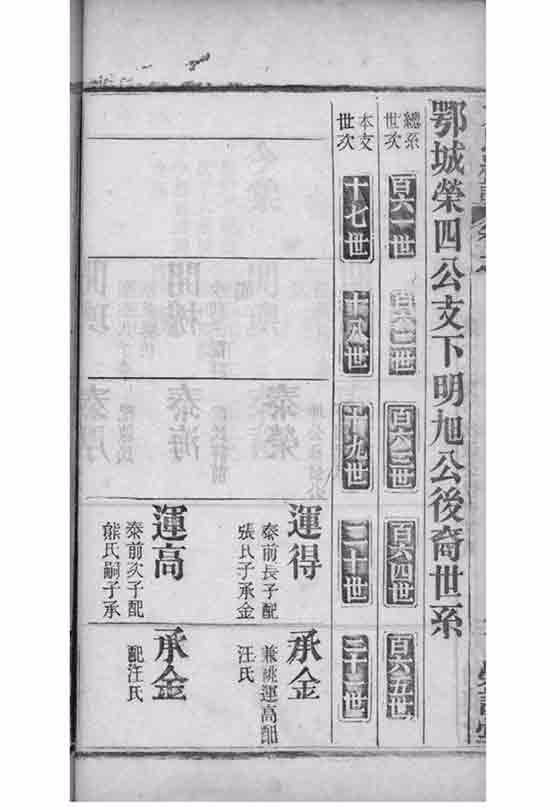 鄂城榮四公支下明旭公後裔世系
總系世次
百六一世
百六二世
百六三世
百六四世
百六五世
本支世次
十七世
十八世
十九世
二十世
二十一世
運得
泰前長子配
張氏子承金
承金
兼祧運高配
汪氏
運高
泰前次子配
熊氏嗣子承
承金
配汪氏